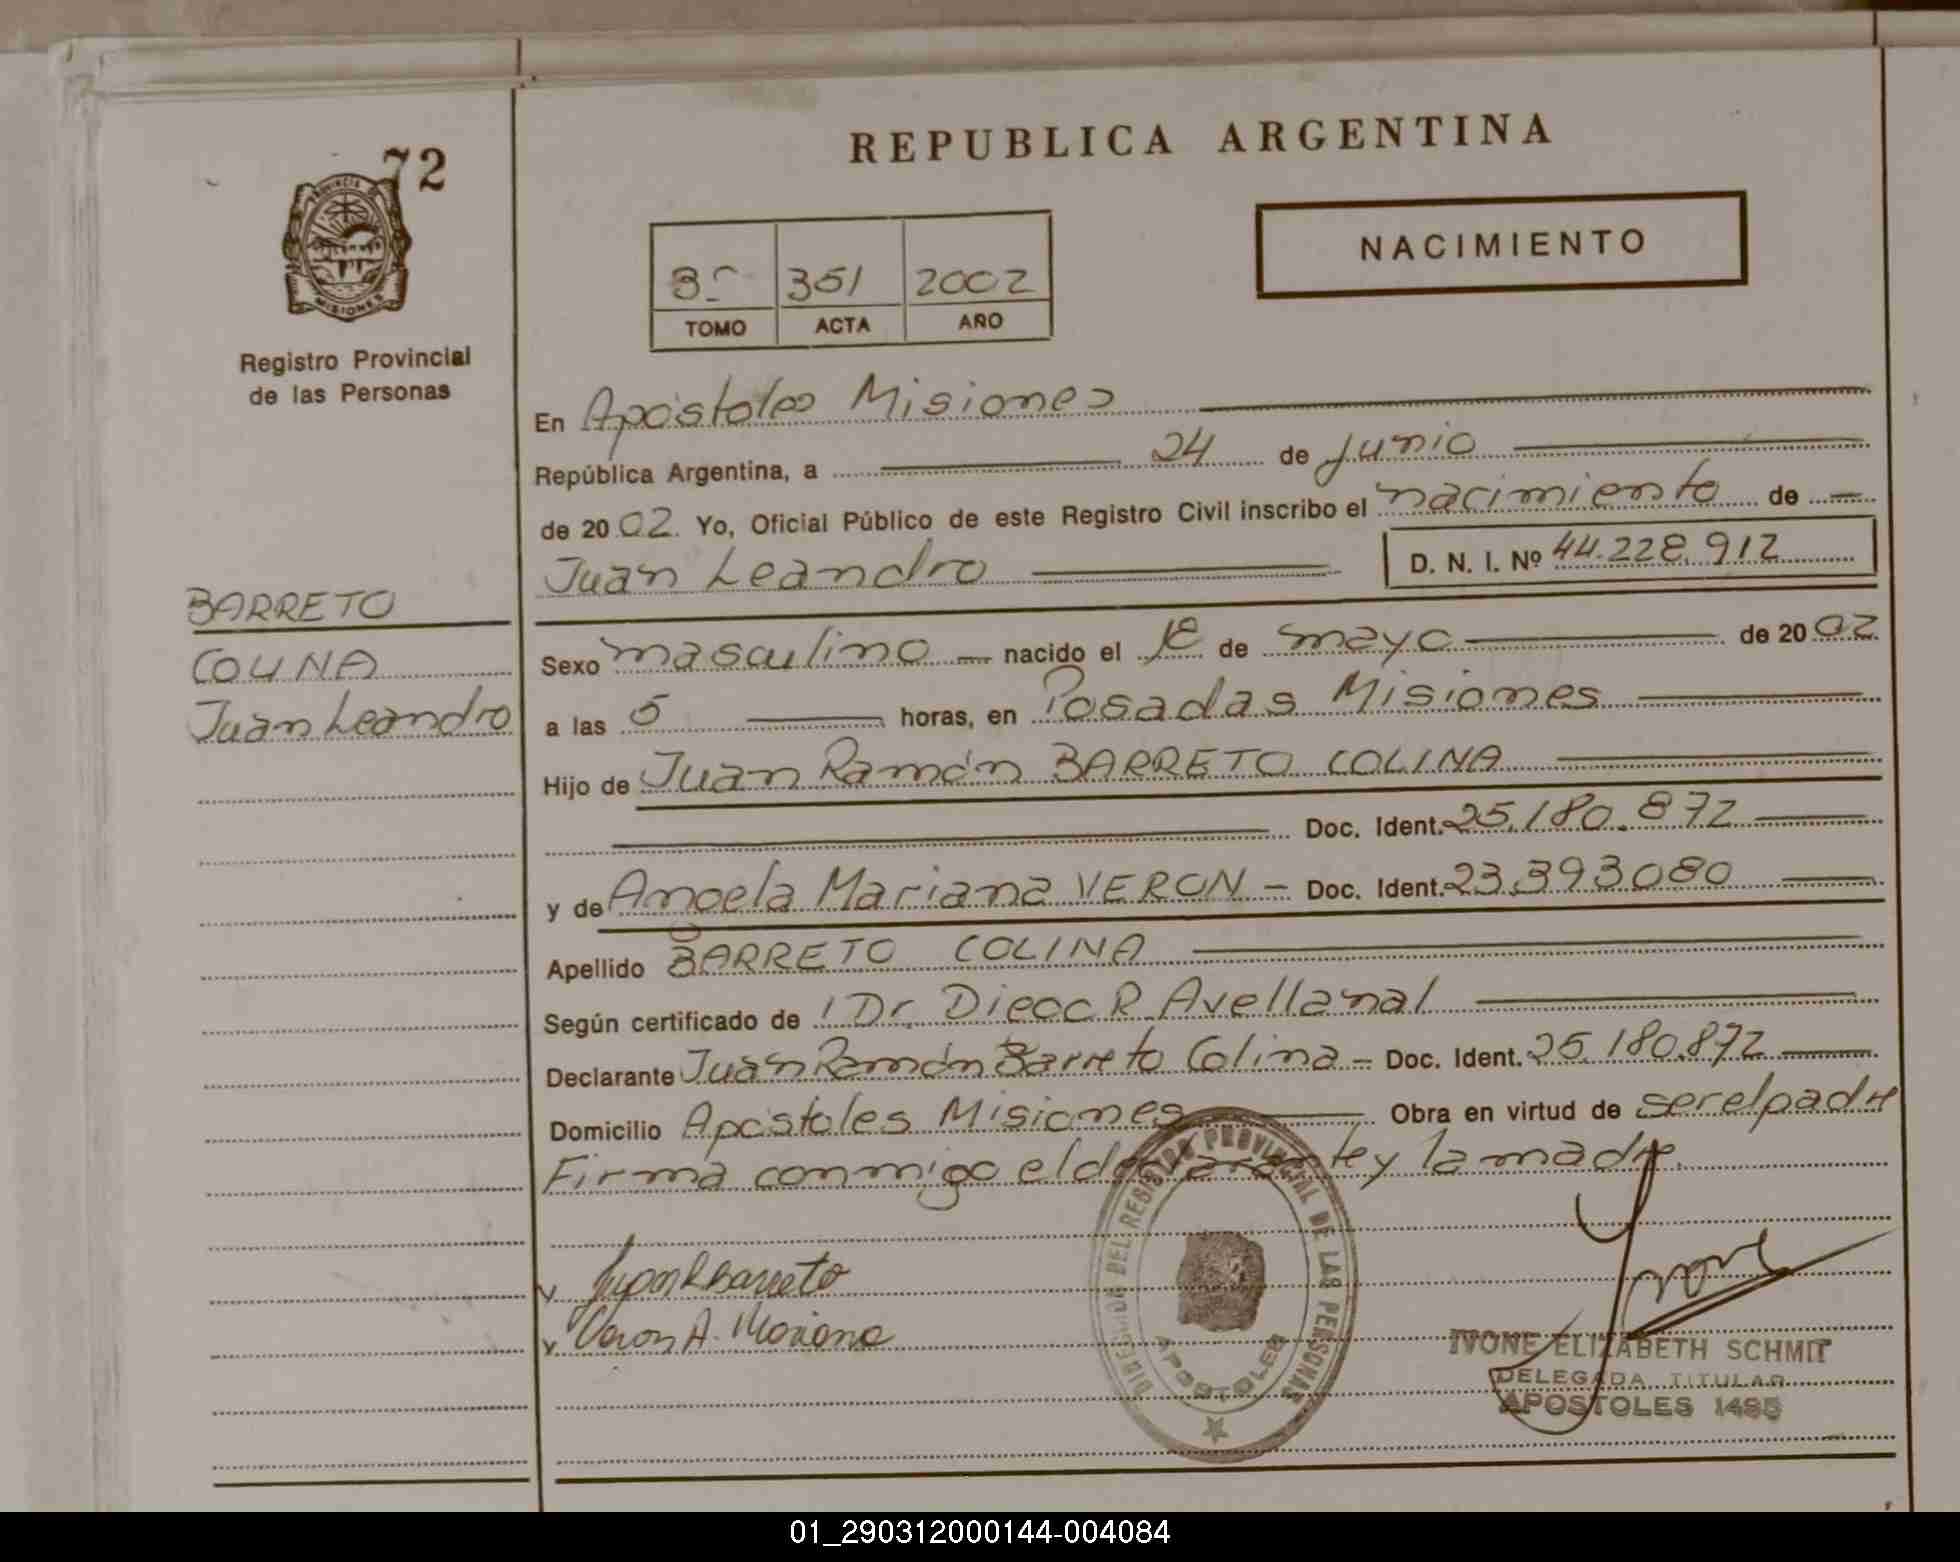 72
PROVINCIA DE
MISIONES
Registro Provincial
de las Personas
BARRETO
COLINA
Juan Leandro
REPUBLICA ARGENTINA
NACIMIENTO
3º 351 2002
TOMO ACTA AÑO
En Apóstoles Misiones
República Argentina, a 24 de junio
de 2002. Yo, Oficial Público de este Registro Civil inscribo el nacimiento de
Juan Leandro D. N. I. Nº 44.228.912
Sexo masculino nacido el 18 de mayo de 2002
a las 5 horas, en Posadas Misiones
Hijo de Juan Ramón BARRETO COLINA
Doc. Ident. 25.180.872
y de Angela Mariana VERON Doc. Ident. 23.393.080
Apellido BARRETO COLINA
Según certificado de Dr. Diego R. Avellanal
Declarante Juan Ramón Barreto Colina Doc. Ident. 25.180.872
Domicilio Apóstoles Misiones Obra en virtud de ser el padre
Firma conmigo el declarante y la madre.
Juan R Barreto
Veron A. Mariana
DIRECCION DEL REGISTRO PROVINCIAL DE LAS PERSONAS
APOSTOLES
Ivone
IVONE ELIZABETH SCHMIT
DELEGADA TITULAR
APOSTOLES 1495
01_290312000144-004084